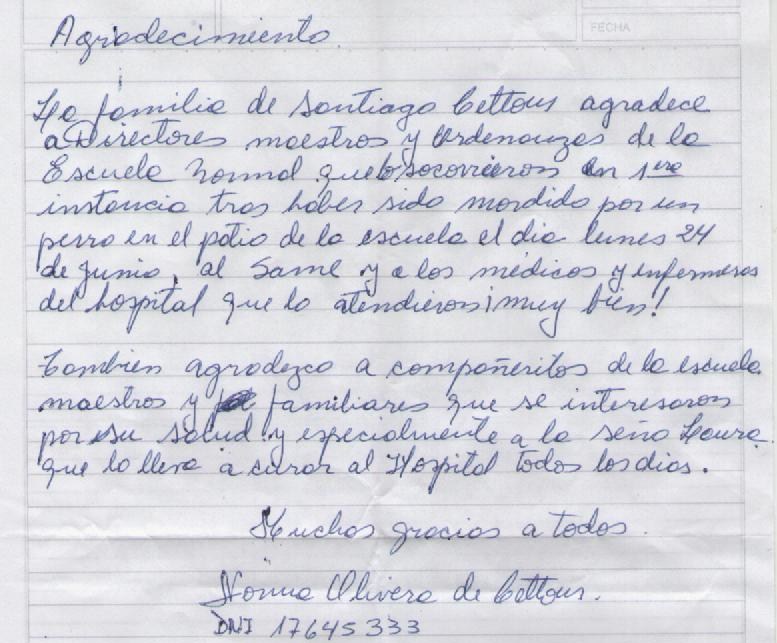 FECHA
Agradecimiento.
La familia de Santiago Cettour agradece
a Directores maestros y Ordenanzas de la
Escuela Normal que lo socorrieron en 1era
instancia tras haber sido mordido por un
perro en el patio de la escuela el dia lunes 24
de Junio, al Same y a los médicos y enfermeros
del hospital que lo atendieron ¡muy bien!
Tambien agradezco a compañeritos de la escuela
maestros y familiares que se interesaron
por su salud y especialmente a la seño Laura
que lo lleva a curar al Hospital todos los dias.
Muchas gracias a todos.
Norma Olivera de Cettour.
DNI 17645333